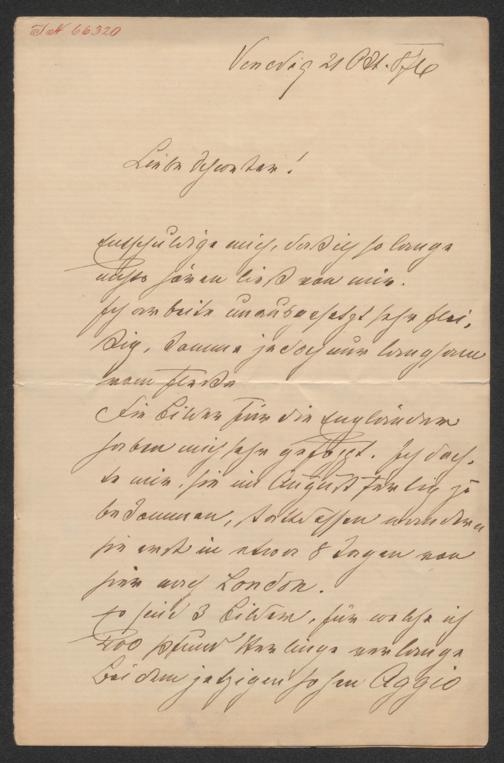 IN 66320
Venedig 21 Okt. 876
Liebe Schwester!
Entschuldige mich, daß ich so lange
nichts hören ließ von mir.
Ich arbeite unausgesetzt sehr flei-
ßig, komme jedoch nur langsam
vom Flecke
Die Bilder für die Engländer
haben mich sehr gefoppt. Ich dach-
te mir, sie im August fertig zu
bekommen, stattdessen wandern
sie erst in etwa 8 Tagen von
hier nach London.
Es sind 3 Bilder, für welche ich
400 pfund Sterlinge verlange
bei dem jetzigen hohen Aggio